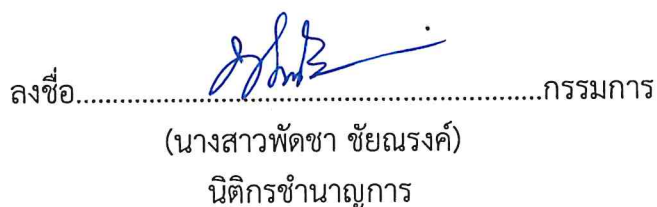 ลงชื่อ..........................................................กรรมการ
(นางสาวพัดชา ชัยณรงค์)
นิติกรชำนาญการ